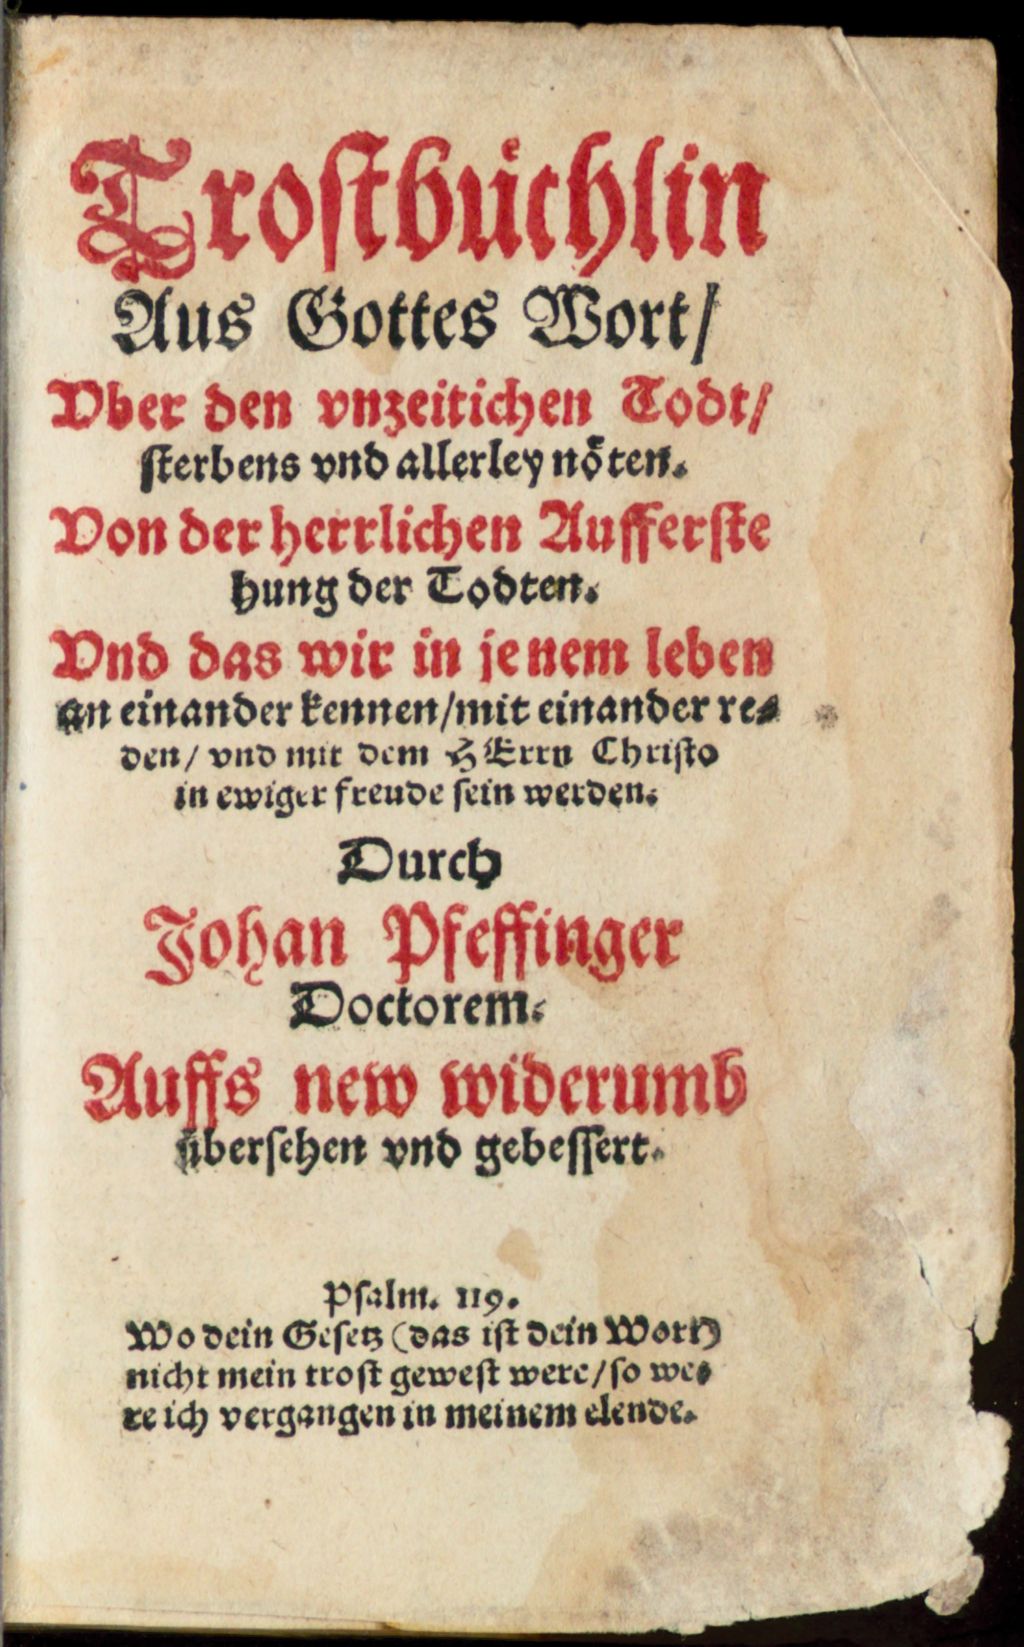 Trostbuͤchlin
Aus Gottes Wort/
Vber den vnzeitichen Todt/
sterbens vnd allerley noͤten.
Von der herrlichen Aufferste
hung der Todten.
Vnd das wir in jenem leben
an einander kennen/mit einander re-
den/ vnd mit dem HErrn Christo
in ewiger freude sein werden.
Durch
Johan Pfeffinger
Doctorem.
Auffs new widerumb
uͤbersehen vnd gebessert.
Psalm. 119.
Wo dein Gesetz (das ist dein Wort)
nicht mein trost gewest were/so we-
re ich vergangen in meinem elende.